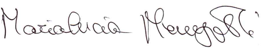 Maria Lucia Meneghetti